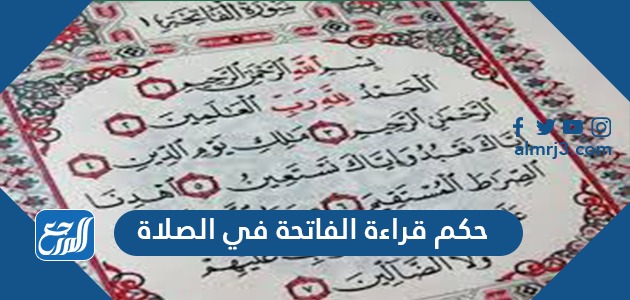 سُورَةُ الفَاتِحَةِ
بِسْمِ اللَّهِ الرَّحْمَٰنِ الرَّحِيمِ ١
الْحَمْدُ لِلَّهِ رَبِّ الْعَالَمِينَ ٢
الرَّحْمَٰنِ الرَّحِيمِ ٣ مَالِكِ يَوْمِ الدِّينِ ٤
إِيَّاكَ نَعْبُدُ وَإِيَّاكَ نَسْتَعِينُ ٥ اهْدِنَا
الصِّرَاطَ الْمُسْتَقِيمَ ٦
عَلَيْهِمْ
وَلَا الضَّالِّينَ ٧
almrj3.com
حكم قراءة الفاتحة في الصلاة
المرجع